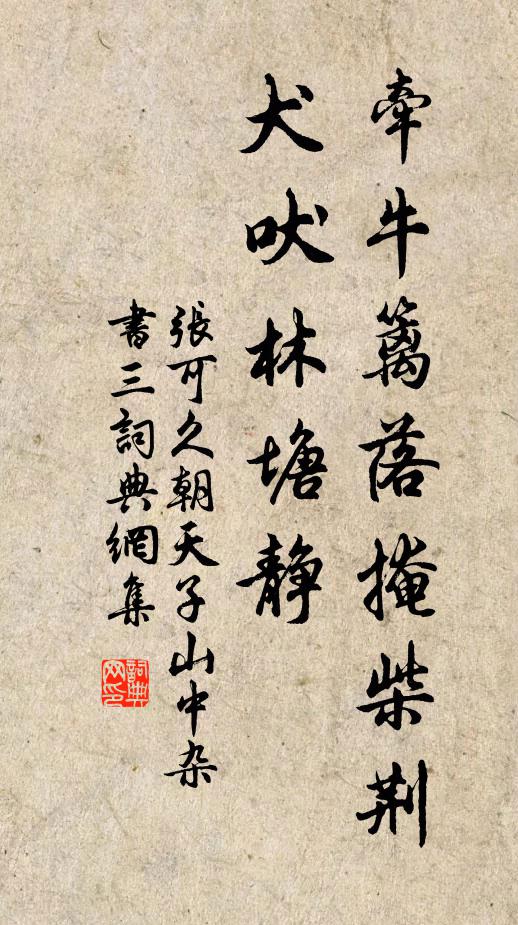 牽牛篱落掩柴荆
犬吠林塘静
張可久朝天子山中杂
書三詞典網集
詞典网印